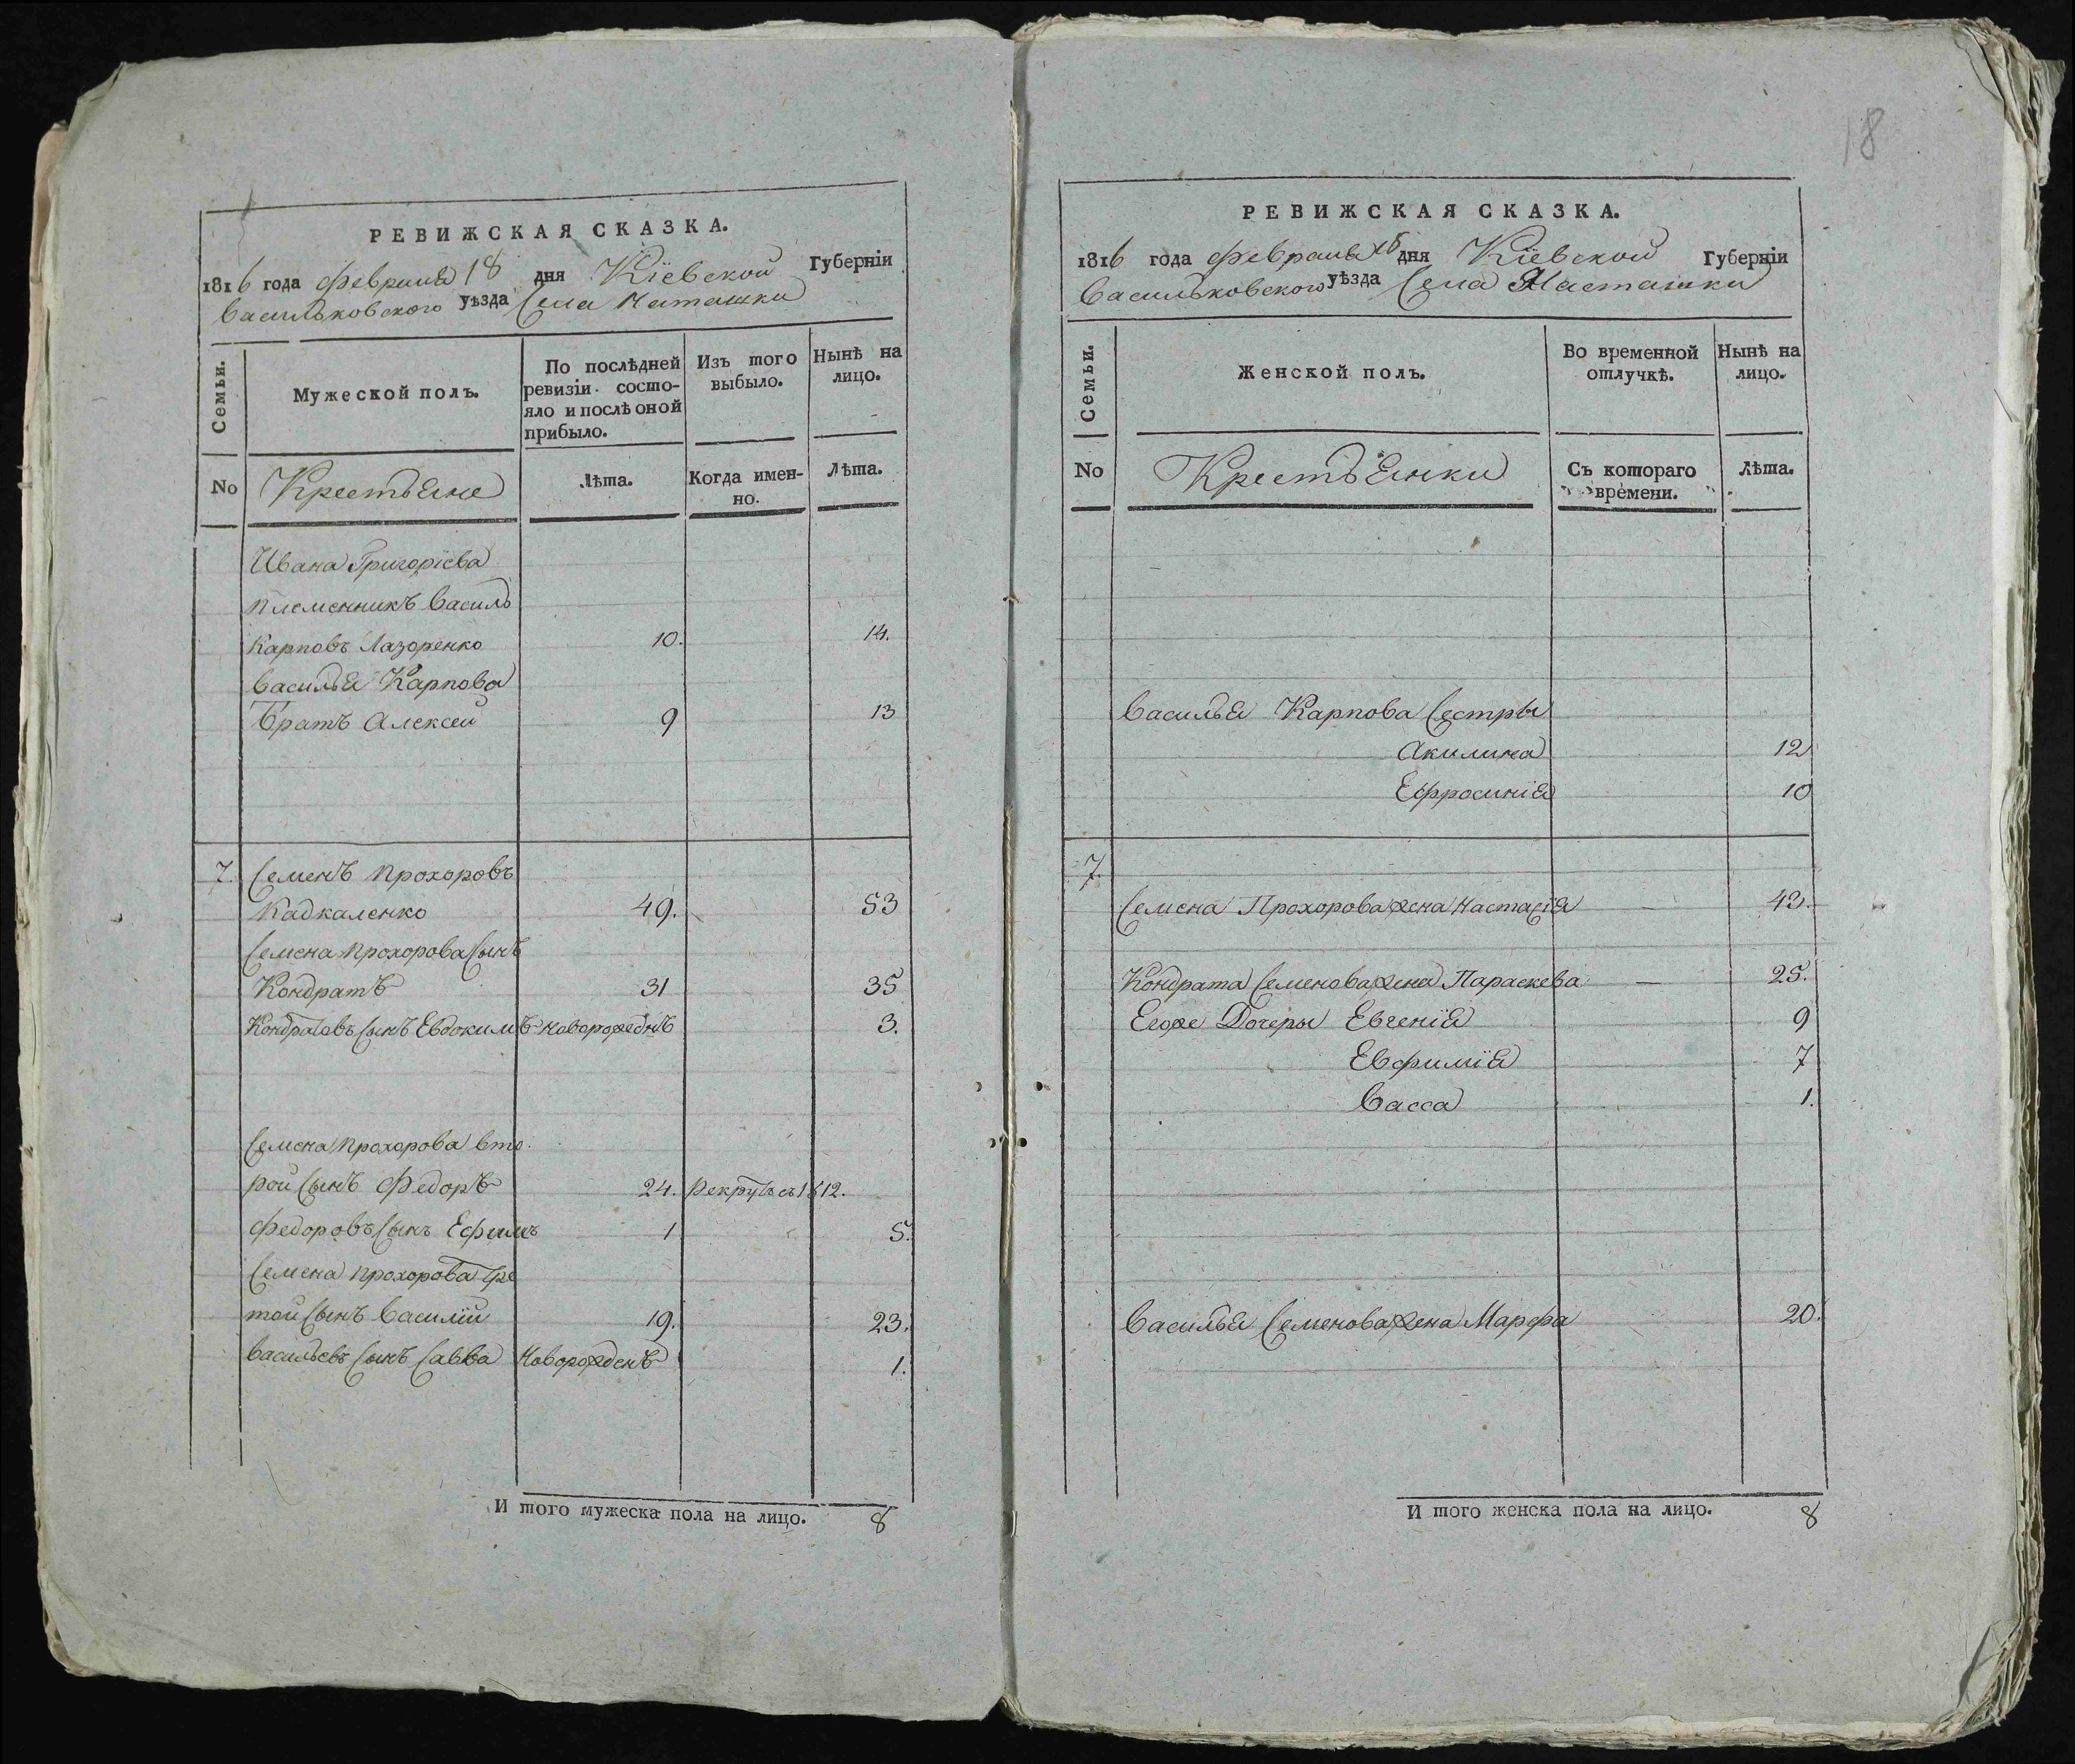 РЕВИЖСКАЯ СКАЗКА.
1816 года февраля 18 дня Кіевской Губерніи
Васильковского уѣзда Села Насташки
Семьи.
Мужеской полъ.
По послѣдней ревизіи состо-
яло и послѣ оной
прибыло.
Изъ того
выбыло.
Нынѣ на
лицо.
No
Крестьяне
Лѣта.
Когда имен-
но.
Лѣта.
Ивана Григоріева
племенникъ Василь
Карповъ Лазоренко 10. 14.
Василья Карпова
Братъ Алексей 9 13
7. Семенъ Прохоровъ
Кадкаленко 49. 53
Семена Прохорова Сынъ
Кондратъ 31 35
Кондратовъ Сынъ Евдокимъ новорожденъ 3.
Семена Прохорова вто
рой Сынъ Федоръ 24. рекрутъ съ 1812.
Федоровъ Сынъ Ефимъ 1 5.
Семена Прохорова тре
той Сынъ Василій 19. 23.
Васильевъ Сынъ Савва Новорожденъ 1.
И того мужеска пола на лицо. 8
18
РЕВИЖСКАЯ СКАЗКА.
1816 года февраля 18 дня Кіевской Губерніи
Васильковского уѣзда Села Насташки
Семьи.
Женской полъ.
Во временной
отлучкѣ.
Нынѣ на
лицо.
No
Крестьянки
Съ котораго
времени.
Лѣта.
Василья Карпова Сестры
Акилина 12
Ефросинія 10
7.
Семена Прохорова жена Настасія — 43.
Кондрата Семенова жена Параскева — 25.
Егоже Дочеры Евгенія 9
Евфимія 7
Васса 1.
Василья Семенова жена Марфа 20.
И того женска пола на лицо. 8